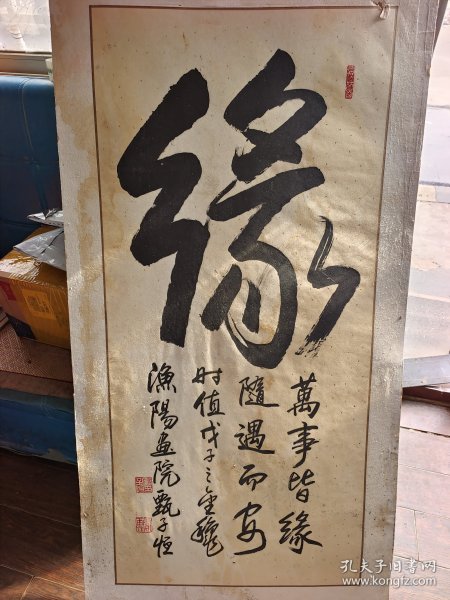 緣
萬事皆緣
隨遇而安
时值戊子之金秋
漁陽画院甄子恒
孔夫子旧书网
www.kongfz.com